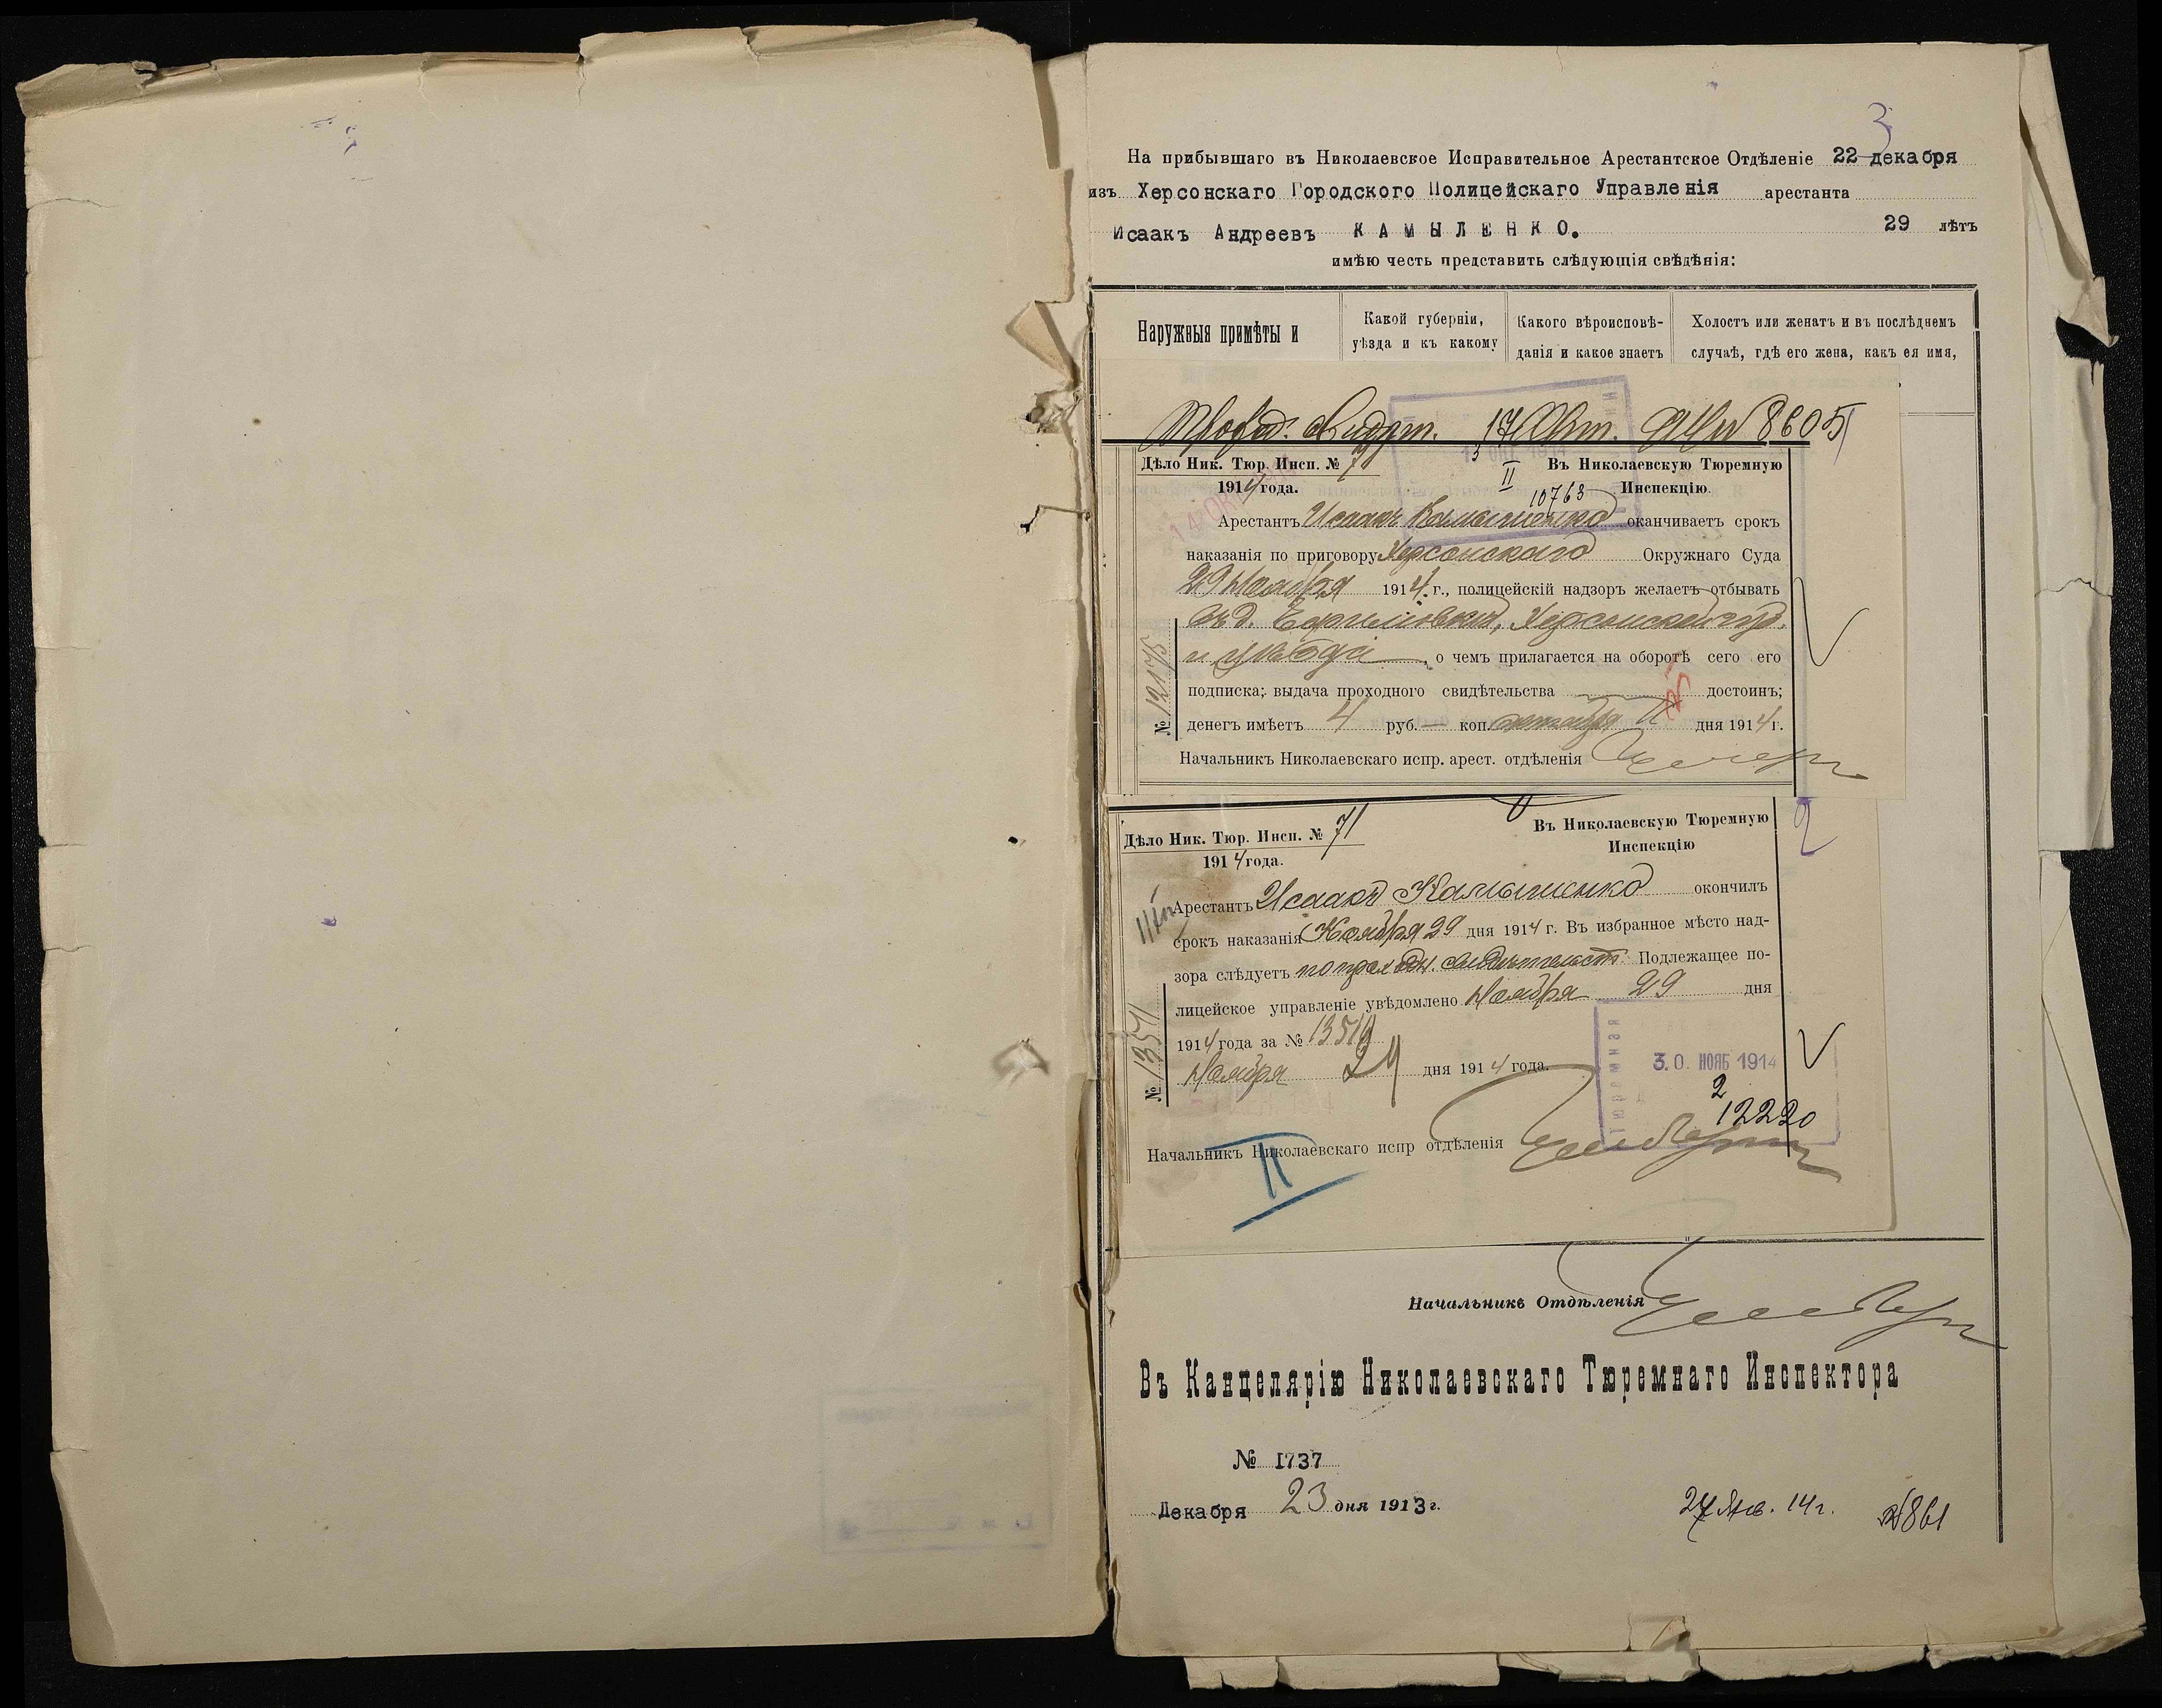 3
На прибывшаго въ Николаевское Исправительное Арестантское Отдѣленіе 22 декабря
изъ Херсонскаго Городского Полицейскаго Управленія арестанта
Исаакъ Андреевъ КАМЫЛЕНКО. 29 лѣтъ
имѣю честь представить слѣдующія свѣдѣнія:
Наружныя примѣты и
Какой губерніи,
уѣзда и къ какому
Какого вѣроисповѣ-
данія и какое знаетъ
Холостъ или женатъ и въ послѣднемъ
случаѣ, гдѣ его жена, какъ ея имя,
17 Окт. 8605
Дѣло Ник. Тюр. Инсп. № 71
1914 года.
II
Въ Николаевскую Тюремную
Инспекцію.
10763
Арестантъ Исаакъ Камыленко оканчиваетъ срокъ
наказанія по приговору Херсонскаго Окружнаго Суда
29 Ноября 1914 г., полицейскій надзоръ желаетъ отбывать
въ д. Херсонской губ.
и уѣзда, о чемъ прилагается на оборотѣ сего его
подписка; выдача проходного свидѣтельства достоинъ;
денегъ имѣетъ 4 руб. — коп. октября 11 дня 1914 г.
№ 12175
Начальникъ Николаевскаго испр. арест. отдѣленія
2
Дѣло Ник. Тюр. Инсп. № 71
1914 года.
Въ Николаевскую Тюремную
Инспекцію
Арестантъ Исаакъ Камыленко окончилъ
срокъ наказанія Ноября 29 дня 1914 г. Въ избранное мѣсто над-
зора слѣдуетъ по проходн. свидѣтельст. Подлежащее по-
лицейское управленіе увѣдомлено Ноября 29 дня
1914 года за № 13510
Ноября 29 дня 1914 года.
№ 13571
30 НОЯБ 1914
2
12220
Начальникъ Николаевскаго испр отдѣленія
II
Начальникъ Отдѣленія
Въ Канцелярію Николаевскаго Тюремнаго Инспектора
№ 1737
Декабря 23 дня 1913 г.
27 Янв. 14 г. № 861